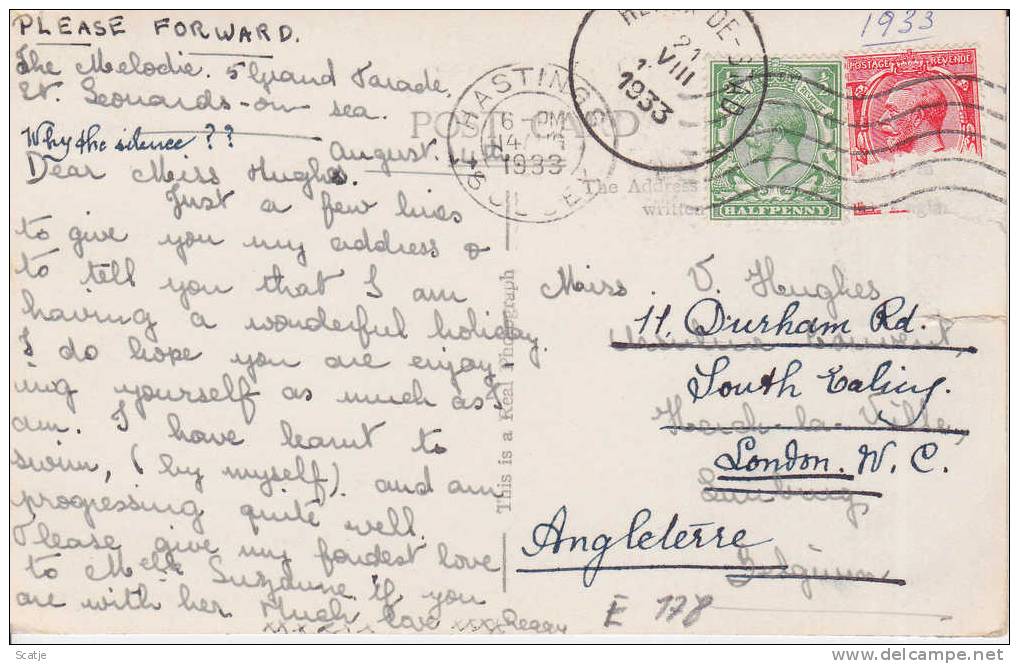 PLEASE FORWARD.
The Melodie. 5 Grand Parade.
St. Leonards-on-
sea.
Why the silence??
August. 14th
Dear Miss Hughes.
Just a few lines
to give you my address &
to tell you that I am
having a wonderful holiday.
I do hope you are enjoy-
ing yourself as much as I
am. I have learnt to
swim, (by myself) and am
progressing quite well.
Please give my fondest love
to Melle Suzanne if you
are with her Much love xxxx Peggy
xxxxx xxxxx
This is a Real Photograph
POST CARD
HASTINGS
6 - PM
14
1933
SUSSEX
DE-STAD
21
VIII
1933
1933
POSTAGE REVENUE
HALFPENNY
The Address
written
Miss. V. Hughes
11. Durham Rd.
Ursuline Convent,
South Ealing.
Herck-la-Ville,
London. W. C.
Limburg
Angleterre
Belgium
E 178
Scatje
delcampe.net